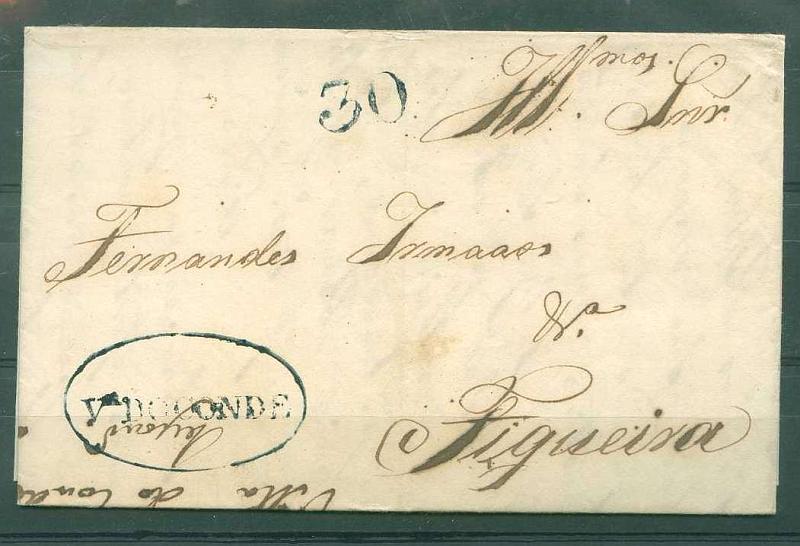 30
Ill.mos Snr.
Fernandes Irmaaos
&.a
Figueira
V.a DO CONDE
Villa do Conde